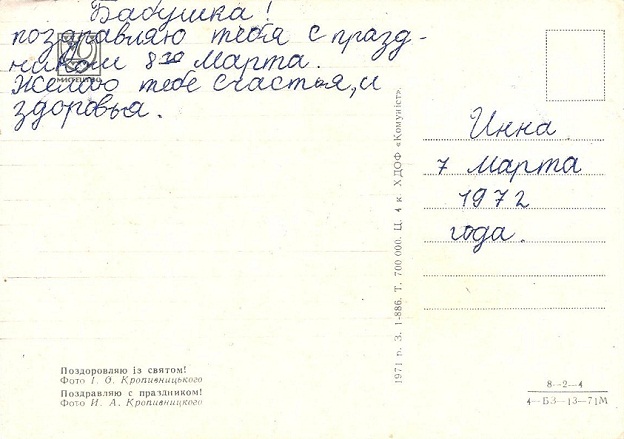 Бабушка!
поздравляю тебя с празд-
ником 8го Марта.
Желаю тебе счастья, и
здоровья.
МИСТЕЦТВО
Инна
7 марта
1972
года.
1971 р. З. 1-886. Т. 700 000. Ц. 4 к ХДОФ «Комуніст».
Поздоровляю із святом!
Фото І. О. Кропивницького
Поздравляю с праздником!
Фото И. А. Кропивницкого
8—2—4
4—БЗ—13—71М